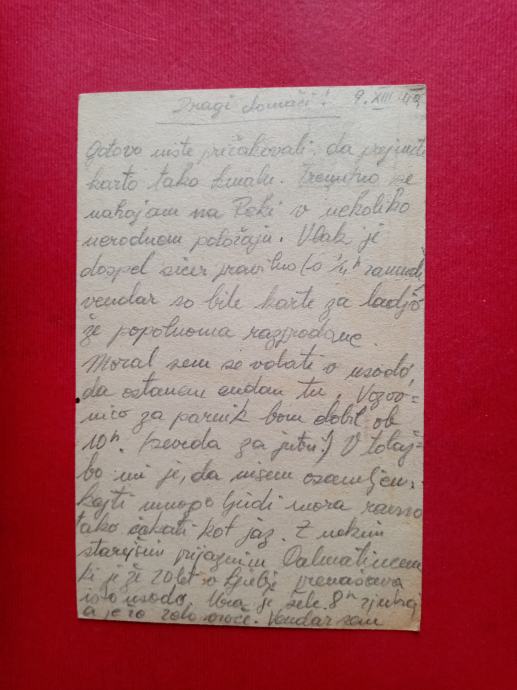 Dragi domači! 9. VIII. 49
Gotovo niste pričakovali, da prejmete
karto tako kmalu. Trenutno se
nahajam na Reki v nekoliko
nerodnem položaju. Vlak je
dospel sicer pravilno (s ¼ʰ zamude)
vendar so bile karte za ladjo
že popolnoma razprodane.
Moral sem se vdati v usodo,
da ostanem endan tu. Vozov=
nico za parnik bom dobil ob
10ʰ. (seveda za jutri!) V tolaž=
bo mi je, da nisem osamljen,
kajti mnogo ljudi mora ravno
tako čakati kot jaz. Z nekim
starejšim prijaznim Dalmatincem
ki je že 20 let v Ljublj. prenašava
isto usodo. Ura je šele 8ʰ zjutraj
a je že zelo vroče. Vendar sem